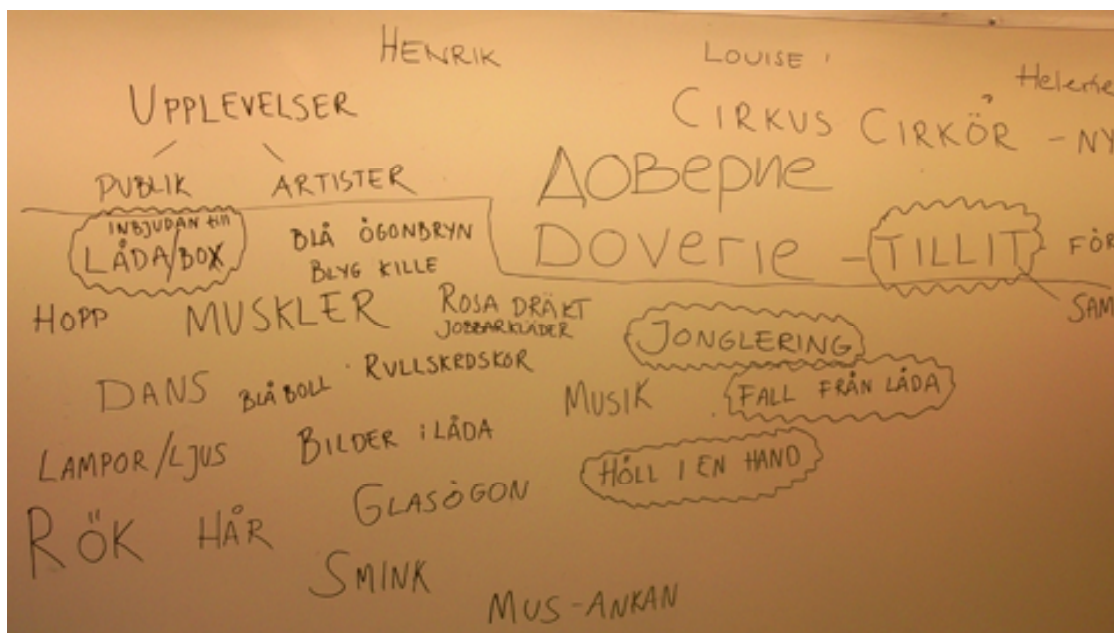 HENRIK
LOUISE
Helene
UPPLEVELSER
CIRKUS CIRKÖR - NY
PUBLIK ARTISTER
ДОВерие
DOVerie - TILLIT FÖR
SAM
INBJUDAN till
LÅDA/BOX
BLÅ ÖGONBRYN
BLYG KILLE
HOPP MUSKLER ROSA DRÄKT
JOBBARKLÄDER
JONGLERING
DANS BLÅ BOLL RULLSKRDSKOR
MUSIK FALL FRÅN LÅDA
LAMPOR/LJUS BILDER i LÅDA
HÖLL I EN HAND
RÖK HÅR GLASÖGON
SMINK
MUS-ANKAN